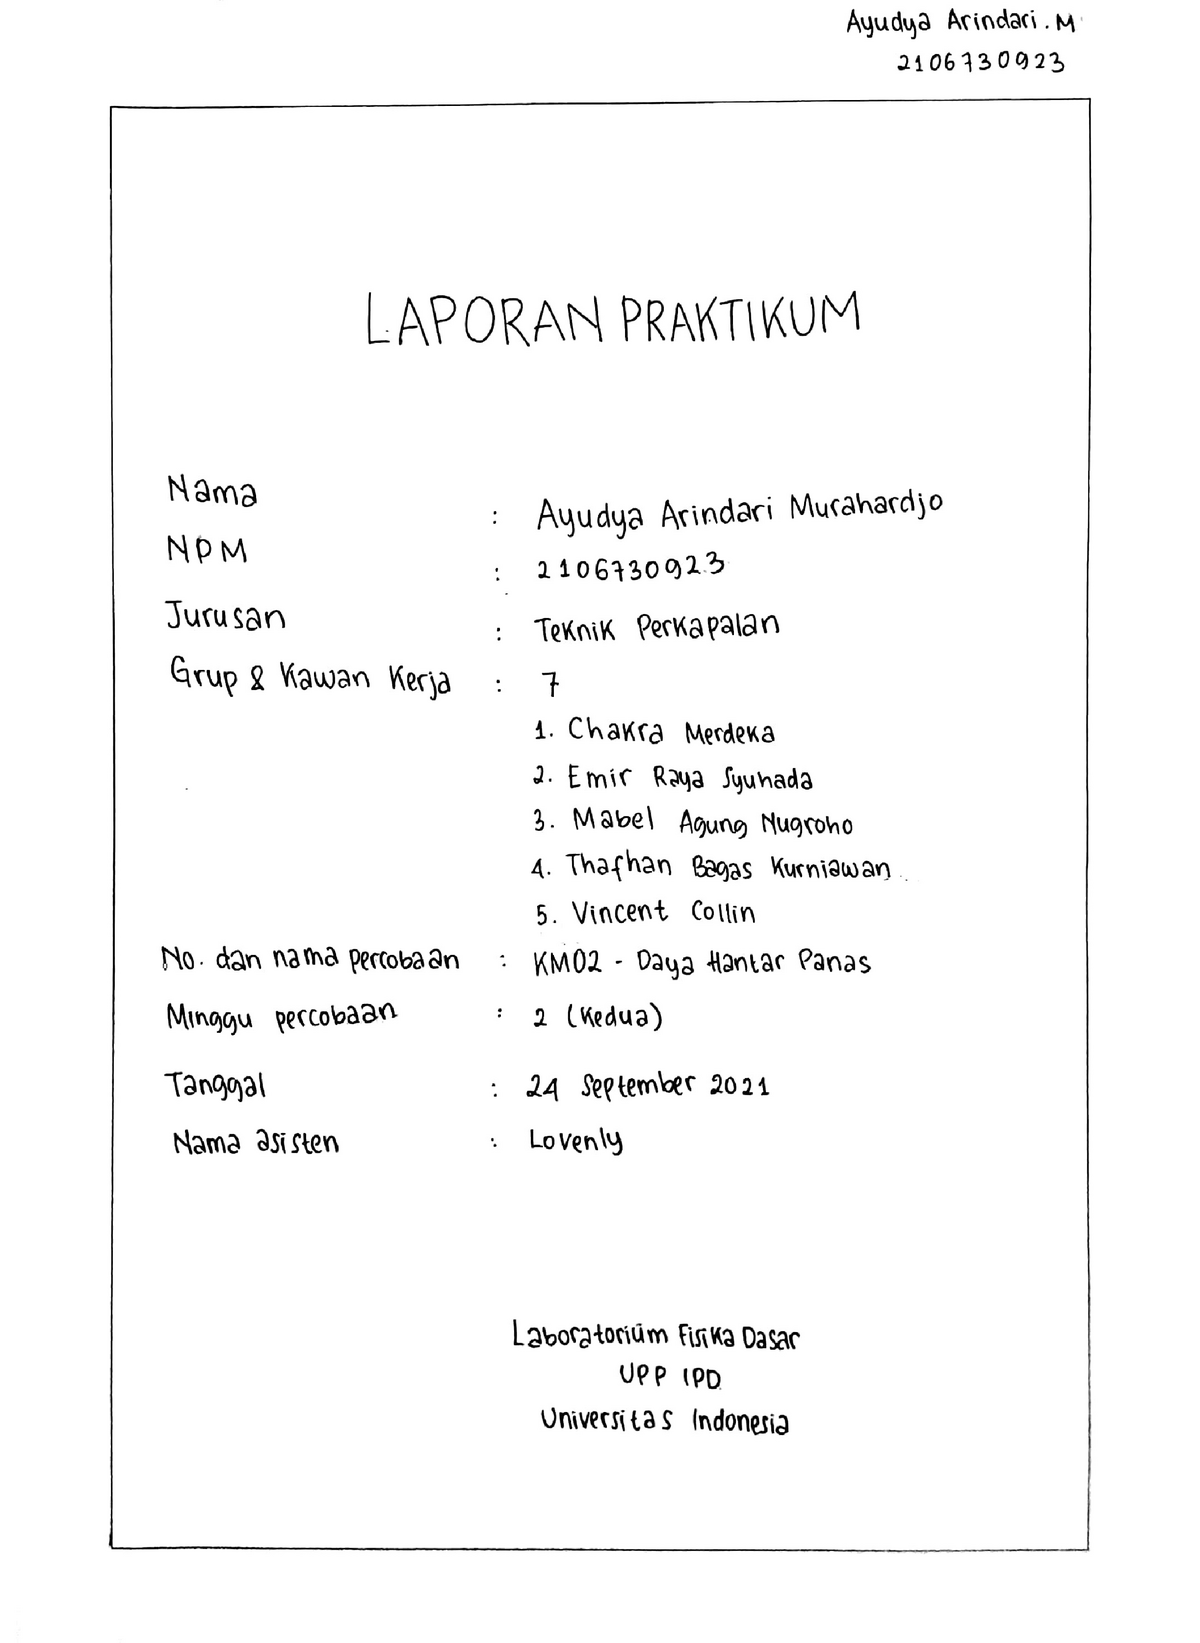 Ayudya Arindari . M
2106730923
LAPORAN PRAKTIKUM
Nama : Ayudya Arindari Murahardjo
NPM : 2106730923
Jurusan : Teknik Perkapalan
Grup & Kawan Kerja : 7
1. Chakra Merdeka
2. Emir Raya Syuhada
3. Mabel Agung Nugroho
4. Thafhan Bagas Kurniawan
5. Vincent Collin
No. dan nama percobaan : KM02 - Daya Hantar Panas
Minggu percobaan : 2 (Kedua)
Tanggal : 24 September 2021
Nama asisten : Lovenly
Laboratorium Fisika Dasar
UPP IPD
Universitas Indonesia